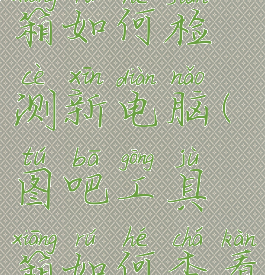 xiāng rú hé jiǎn
箱如何检
cè xīn diàn nǎo
测新电脑(
tú bā gōng jù
图吧工具
xiāng rú hé chá kàn
箱如何查看